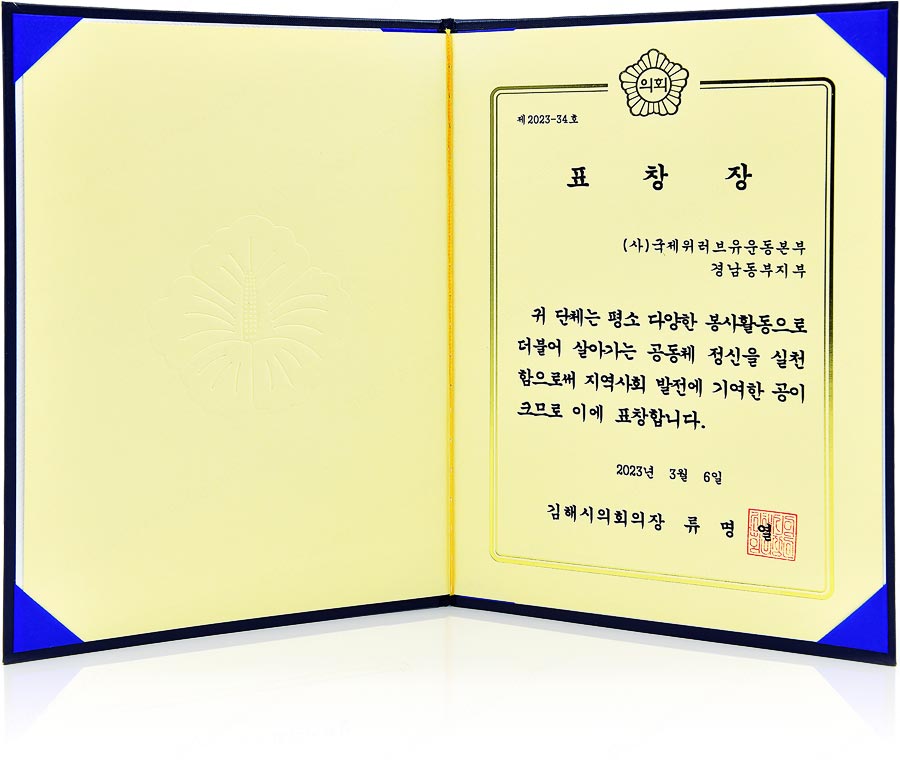 의회
제2023-34호
표 창 장
(사)국제위러브유운동본부
경남동부지부
귀 단체는 평소 다양한 봉사활동으로
더불어 살아가는 공동체 정신을 실천
함으로써 지역사회 발전에 기여한 공이
크므로 이에 표창합니다.
2023년 3월 6일
김해시의회의장 류 명 열